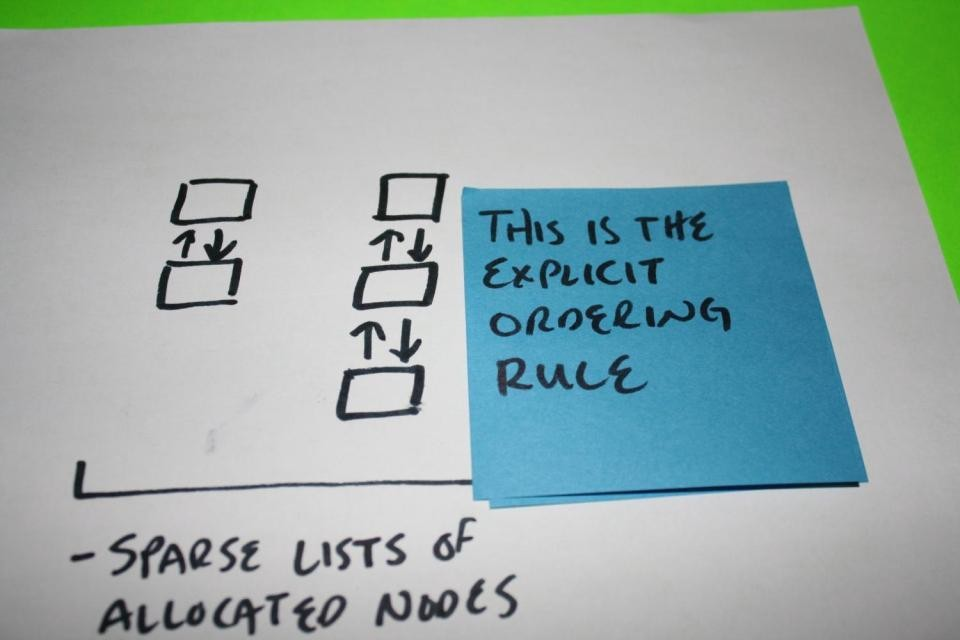 THIS IS THE
EXPLICIT
ORDERING
RULE
- SPARSE LISTS OF
ALLOCATED NODES